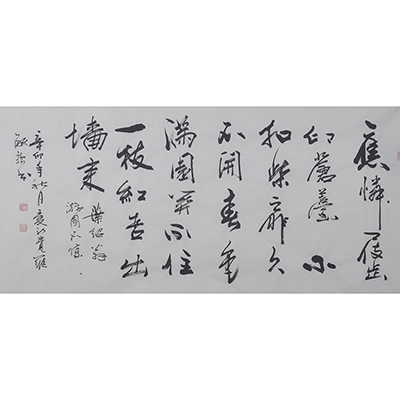 應憐屐齿
印蒼薹小
扣柴扉久
不開春色
滿園関不住
一枝紅杏出
墻来
葉紹翁
游園不值
辛卯年秋月